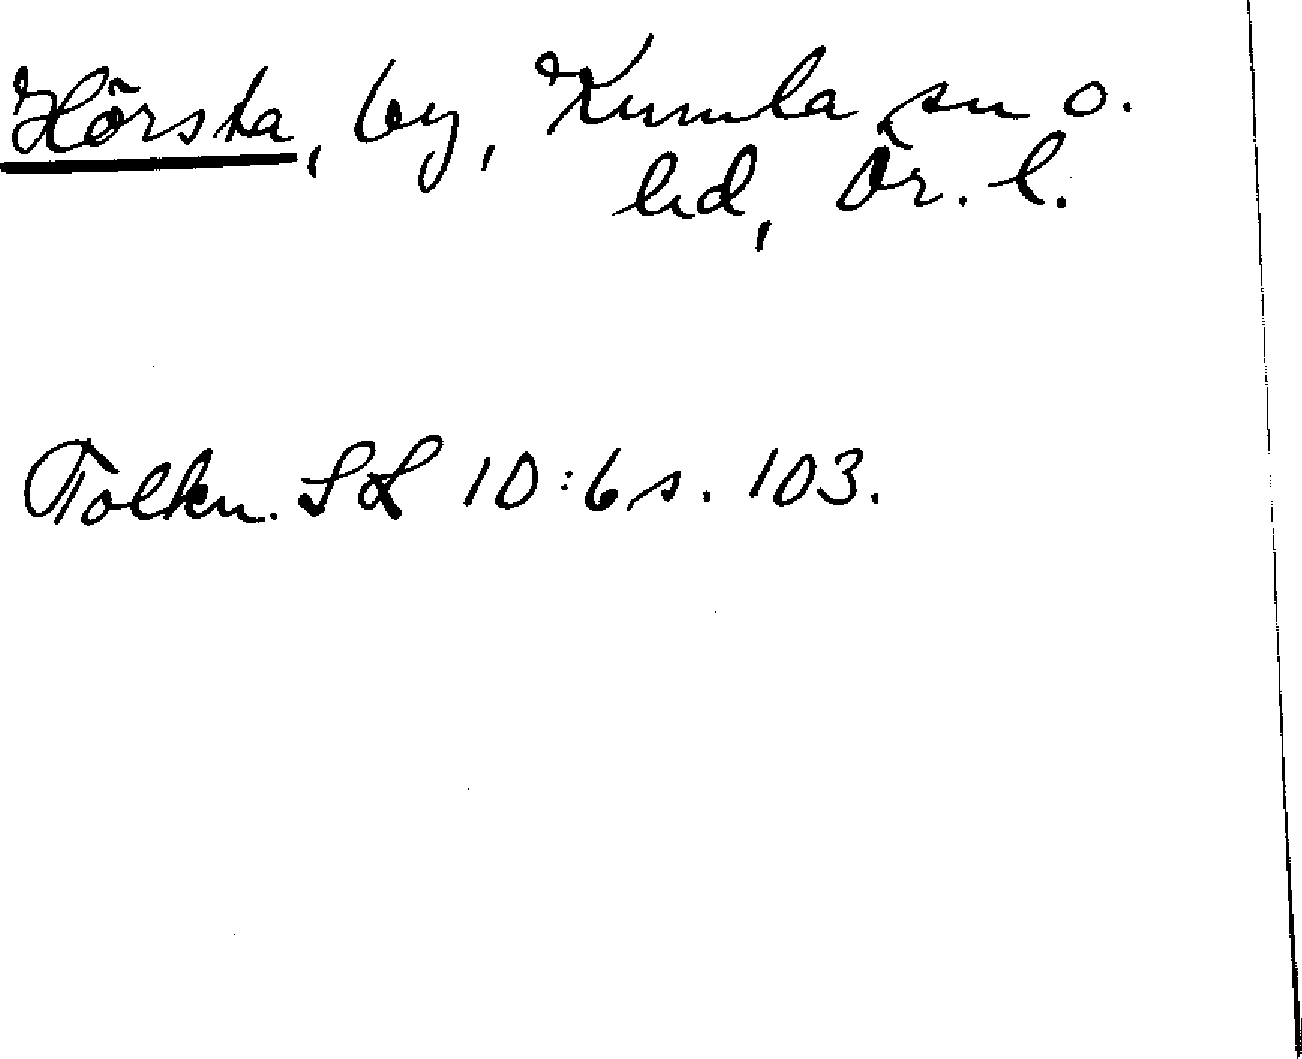 Hörsta, by, Kumla sn o.
hd, Ör. l.
Tolkn. SL 10:6 s. 103.